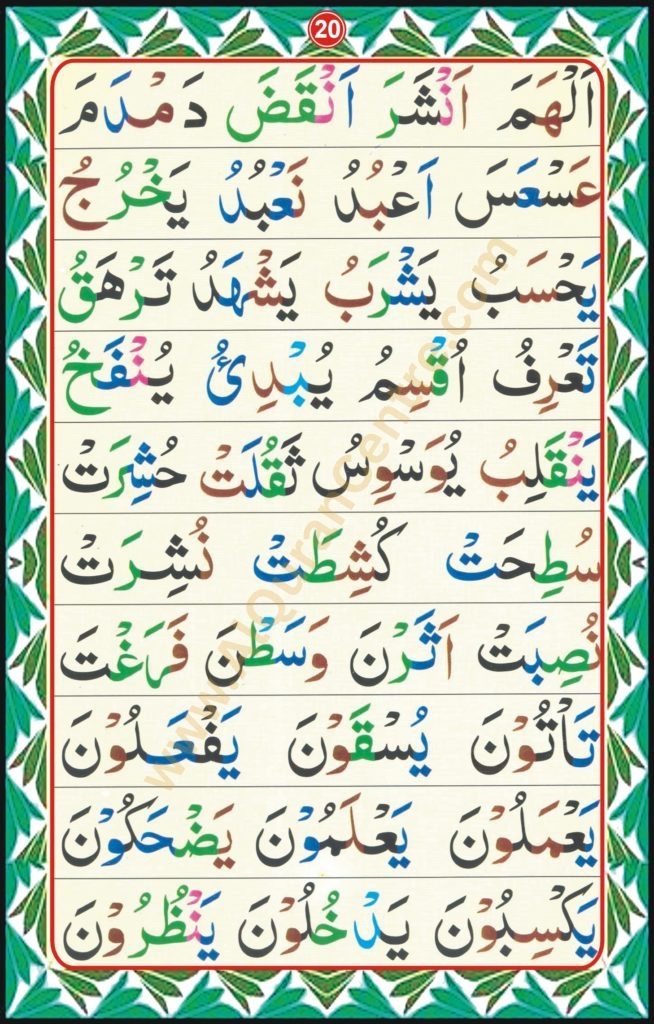 20
اَلْهَمَ اَنْشَرَ اَنْقَضَ دَمْدَمَ
عَسْعَسَ اَعْبُدُ نَعْبُدُ يَخْرُجُ
يَحْسَبُ يَشْرَبُ يَشْهَدُ تَرْهَقُ
تَعْرِفُ اُقْسِمُ يُبْدِئُ يُنْفَخُ
يَنْقَلِبُ يُوَسْوِسُ ثَقُلَتْ حُشِرَتْ
سُطِحَتْ كُشِطَتْ نُشِرَتْ
نُصِبَتْ اَثَرْنَ وَسَطْنَ فَرَغْتَ
تَأْتُوْنَ يُسْقَوْنَ يَفْعَلُوْنَ
يَعْمَلُوْنَ يَعْلَمُوْنَ يَضْحَكُوْنَ
يَكْسِبُوْنَ يَدْخُلُوْنَ يَنْظُرُوْنَ
www.AlQuranCentre.com